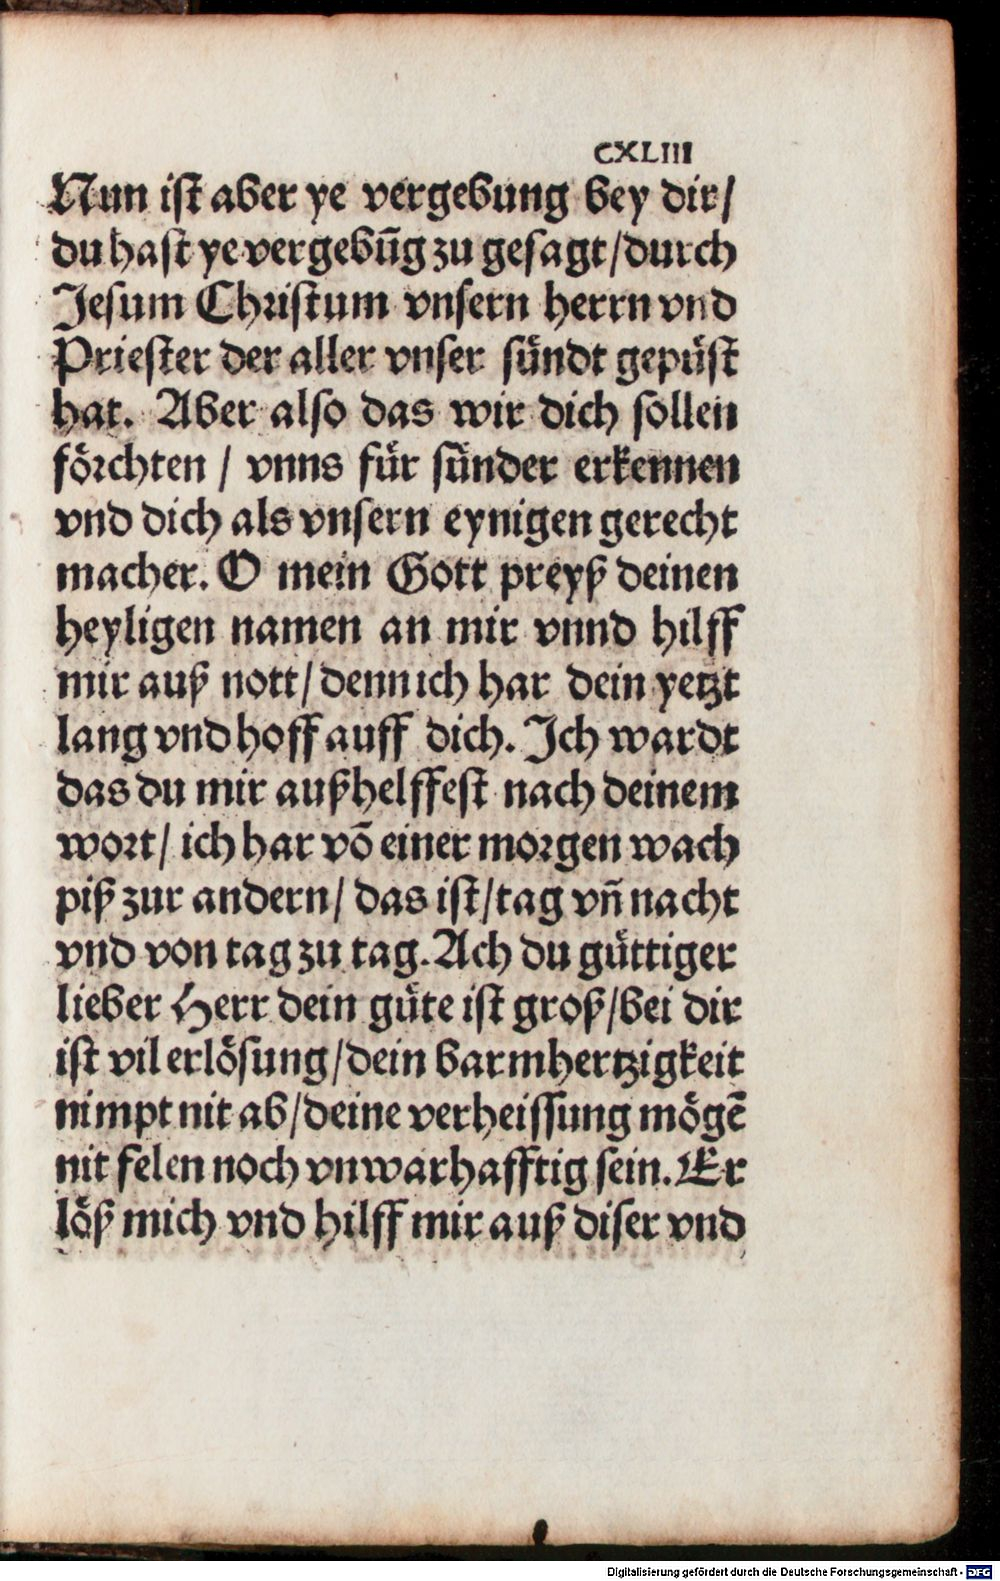 CXLIII
Nun ist aber ye vergebung bey dir/
du hast ye vergebūg zu gesagt/durch
Jesum Christum vnsern herrn vnd
Priester der aller vnser sündt gepüst
hat. Aber also das wir dich sollen
förchten / vnns für sünder erkennen
vnd dich als vnsern eynigen gerecht
macher. O mein Gott preyß deinen
heyligen namen an mir vnnd hilff
mir auß nott/ denn ich har dein yetzt
lang vnd hoff auff dich. Ich wardt
das du mir außhelffest nach deinem
wort/ ich har vō einer morgen wach
piß zur andern/ das ist/tag vn̄ nacht
vnd von tag zu tag. Ach du güttiger
lieber Herr dein güte ist groß/bei dir
ist vil erlösung/dein barmhertzigkeit
nimpt nit ab/deine verheissung mögē
nit felen noch vnwarhafftig sein. Er
löß mich vnd hilff mir auß diser vnd
Digitalisierung gefördert durch die Deutsche Forschungsgemeinschaft - DFG